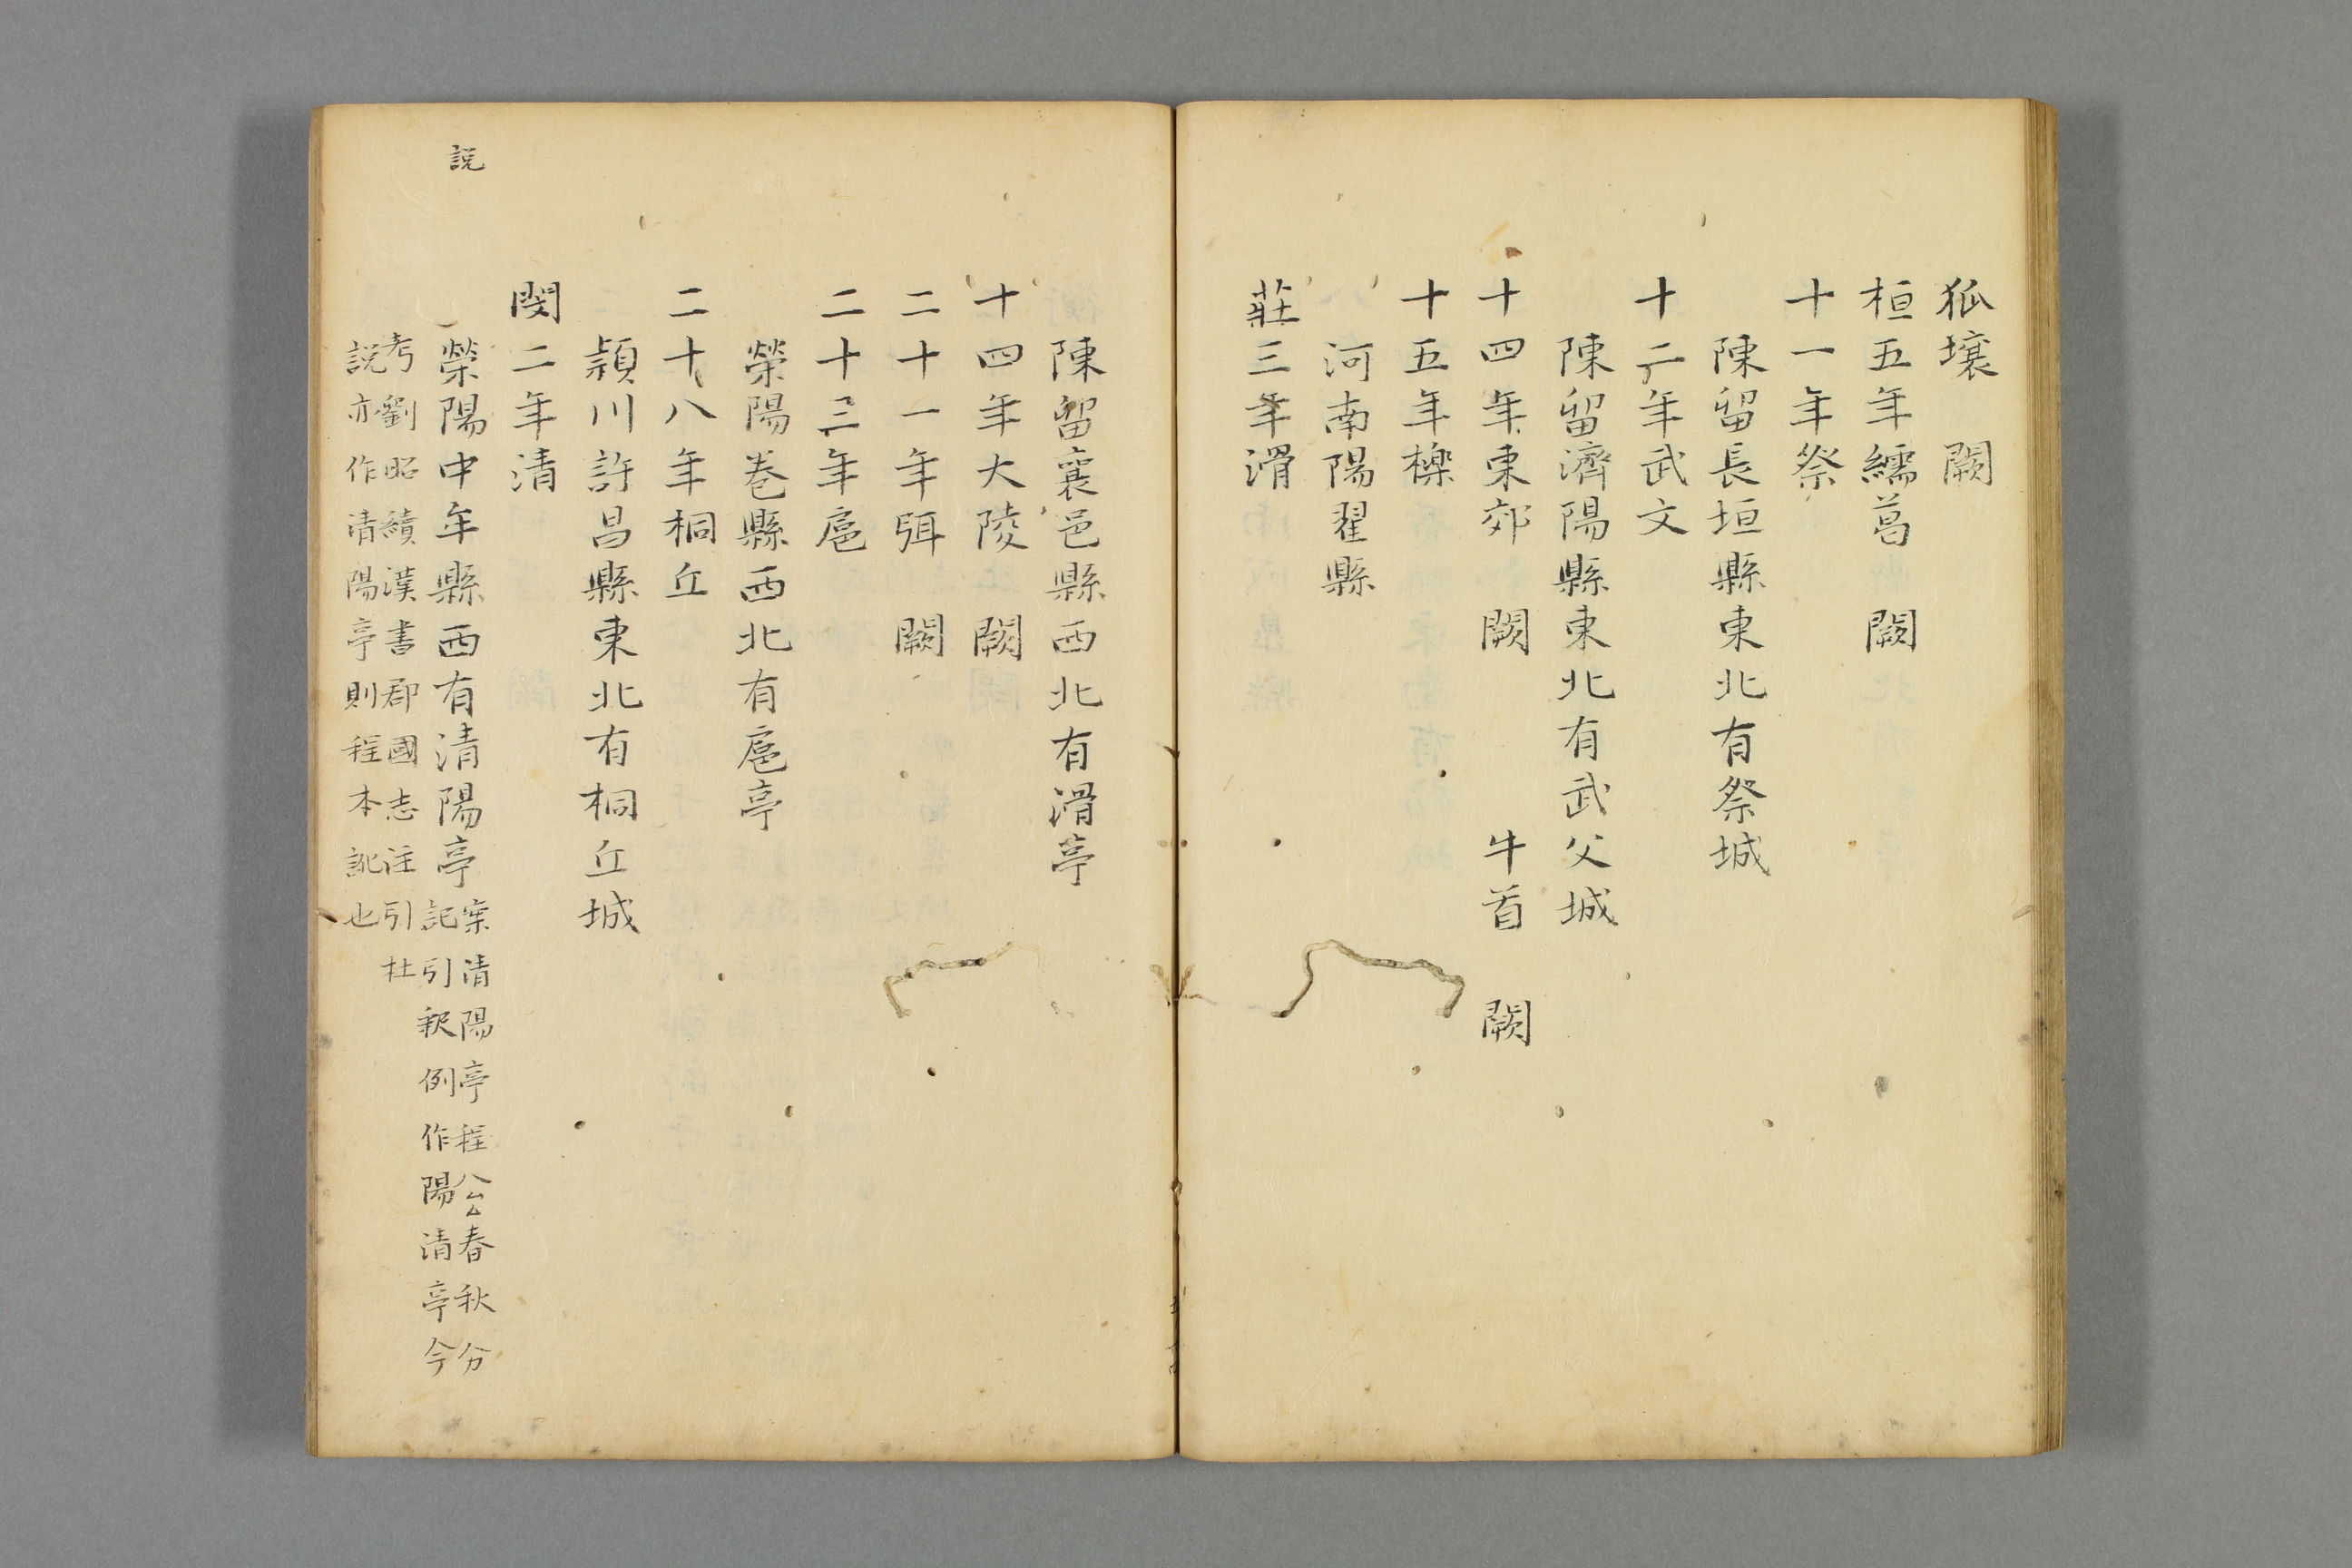 狐壤　闕
桓五年繻葛　闕
十一年祭
陳留長垣縣東北有祭城
十二年武文
陳留濟陽縣東北有武父城
十四年東郊　闕　牛首　闕
十五年櫟
河南陽翟縣
莊三年滑
陳留襄邑縣西北有滑亭
十四年大陵　闕
二十一年弭　闕
二十三年扈
榮陽卷縣西北有扈亭
二十八年桐丘
頴川許昌縣東北有桐丘城
閔二年清
說
榮陽中年縣西有清陽亭
案清陽亭程公厶春秋分
記引釈例作陽清亭今
考劉昭續漢書郡國志注引杜
說亦作清陽亭則程本訛也